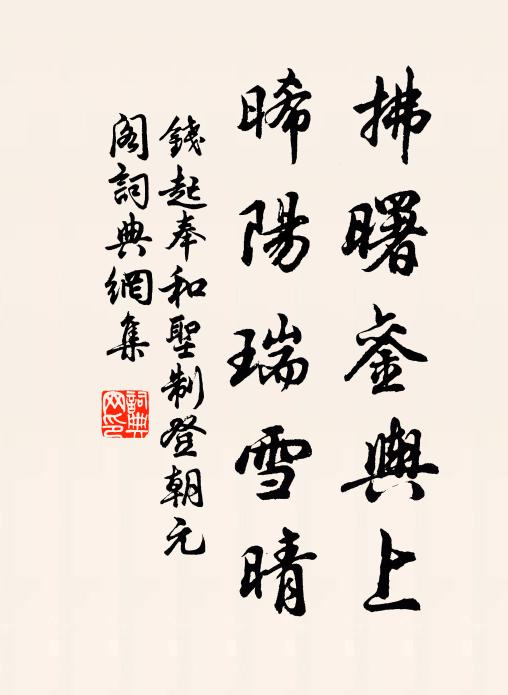 拂曙銮輿上
晞陽瑞雪晴
錢起奉和聖制登朝元
閣詞典網集
詞典
网印